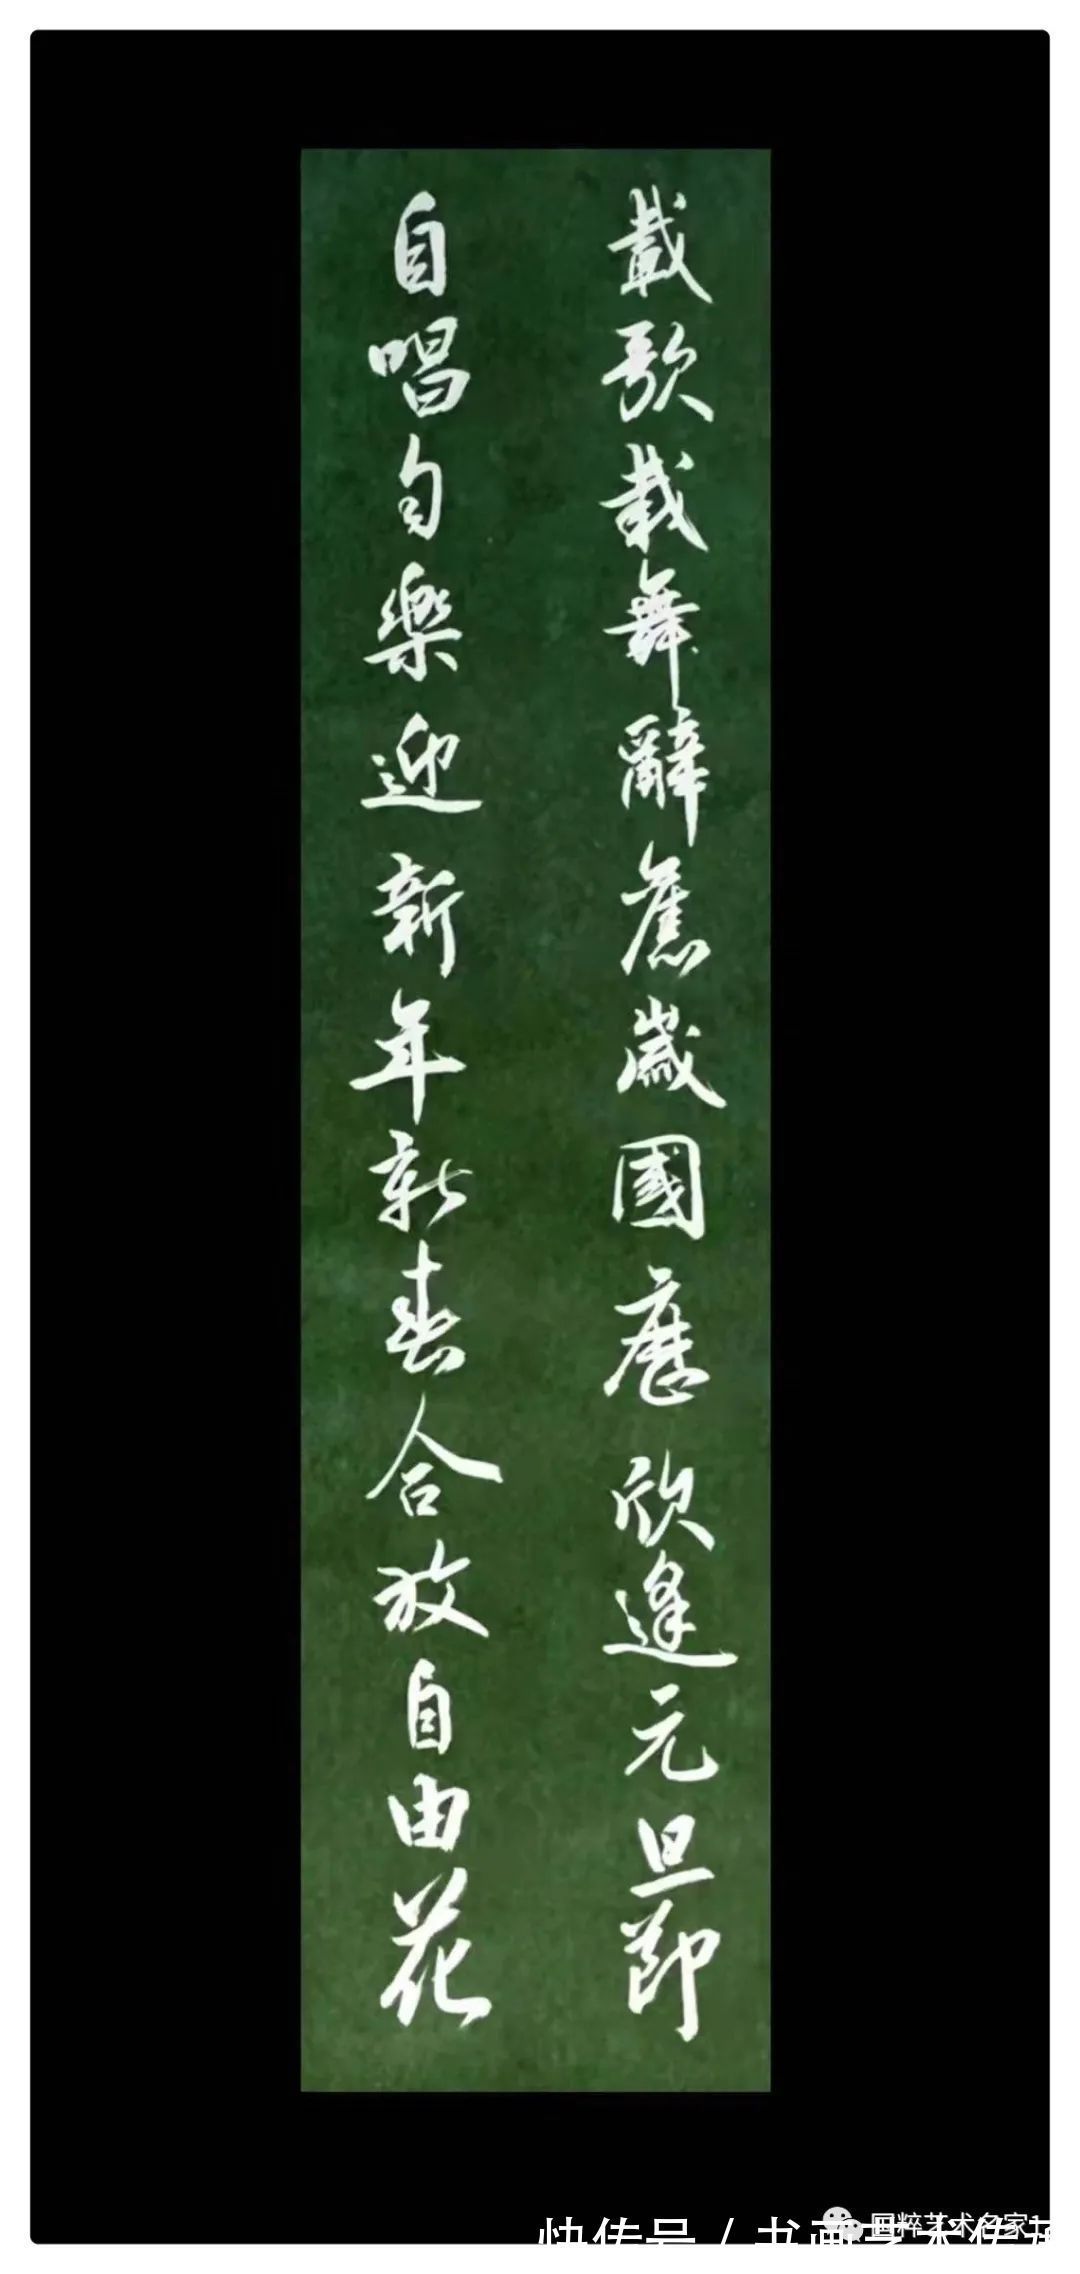 載歌載舞辭舊歲國曆欣逢元旦節
自唱自樂迎新年新春合放自由花
国粹艺术名家
快传号 / 书画艺术传